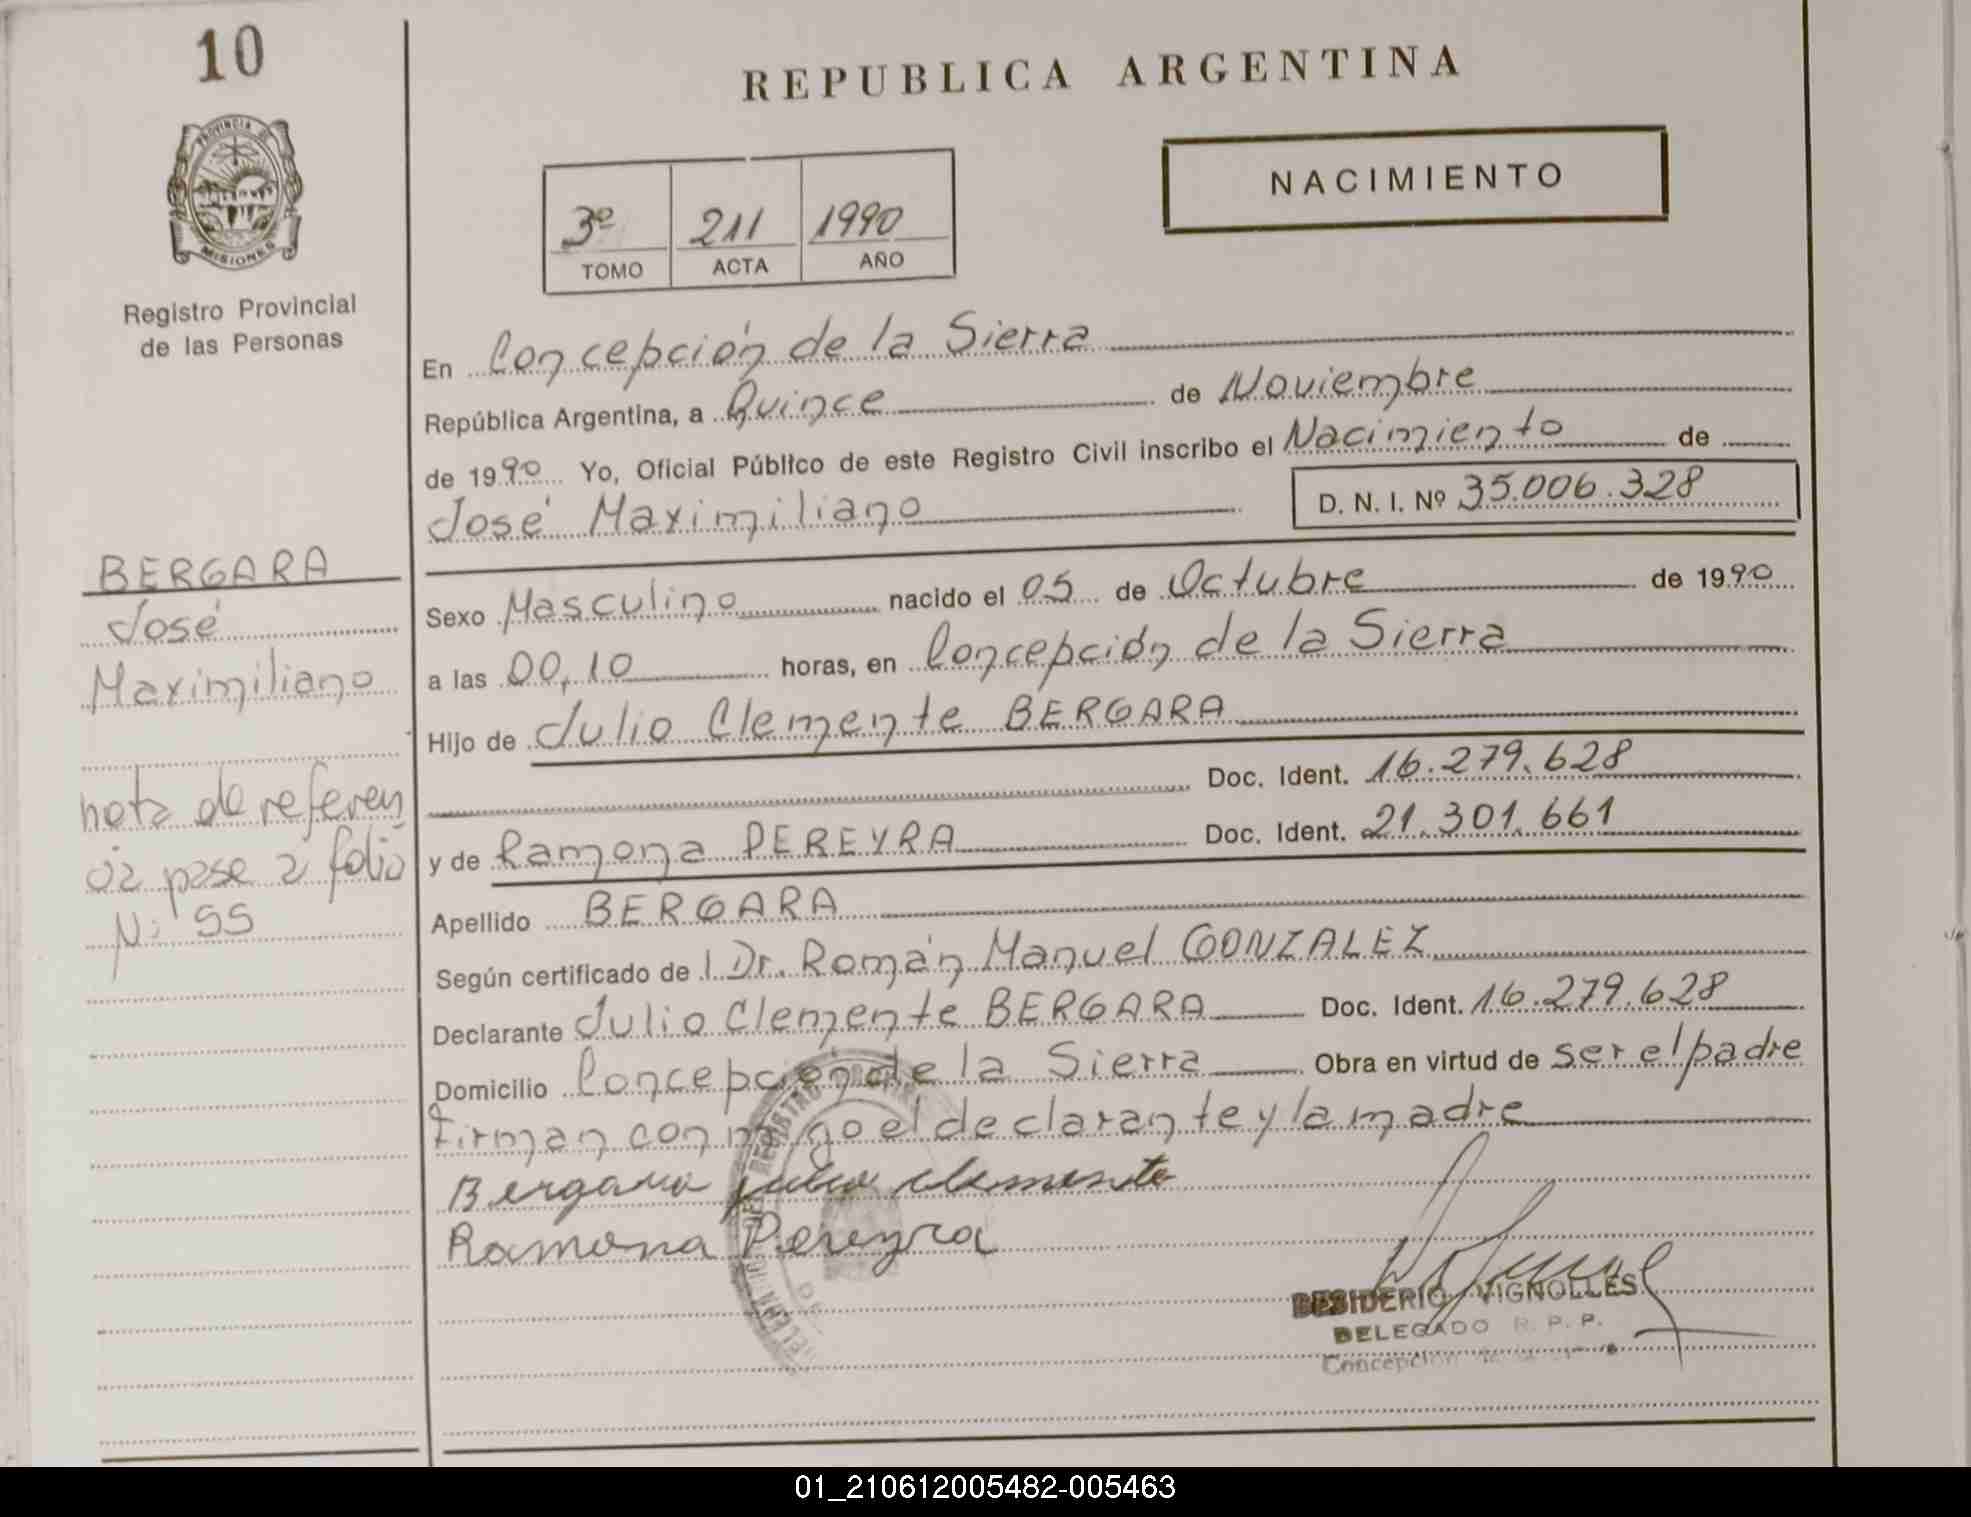 10
PROVINCIA DE
MISIONES
Registro Provincial
de las Personas
BERGARA
José
Maximiliano
nota de referen
cia pase a folio
Nº 55
REPUBLICA ARGENTINA
NACIMIENTO
3º 211 1990
TOMO ACTA AÑO
En Concepción de la Sierra
República Argentina, a Quince de Noviembre
de 1990 Yo, Oficial Público de este Registro Civil inscribo el Nacimiento de
José Maximiliano D. N. I. Nº 35.006.328
Sexo Masculino nacido el 05 de Octubre de 1990
a las 00,10 horas, en Concepción de la Sierra
Hijo de Julio Clemente BERGARA
Doc. Ident. 16.279.628
y de Ramona PEREYRA Doc. Ident. 21.301.661
Apellido BERGARA
Según certificado de l Dr. Román Manuel GONZALEZ
Declarante Julio Clemente BERGARA Doc. Ident. 16.279.628
Domicilio Concepción de la Sierra Obra en virtud de ser el padre
Firman conmigo el declarante y la madre
Bergara julio clemente
Ramona Pereyra
DESIDERIO VIGNOLLES
DELEGADO R. P. P.
Concepción de la
01_210612005482-005463